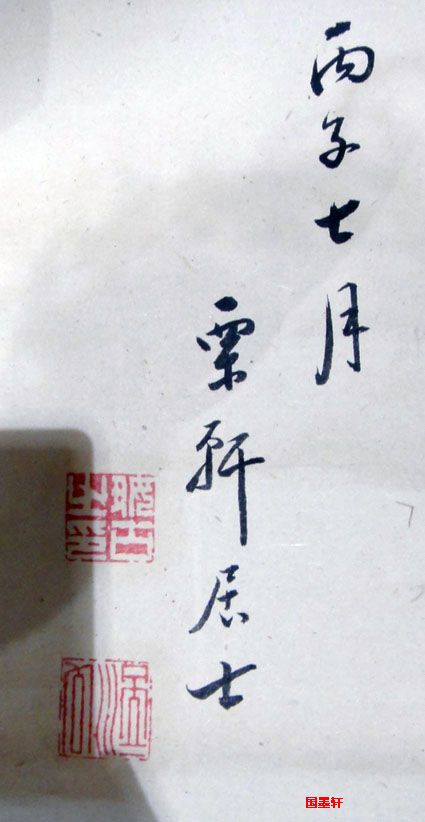 丙子七月
栗軒居士
国墨轩